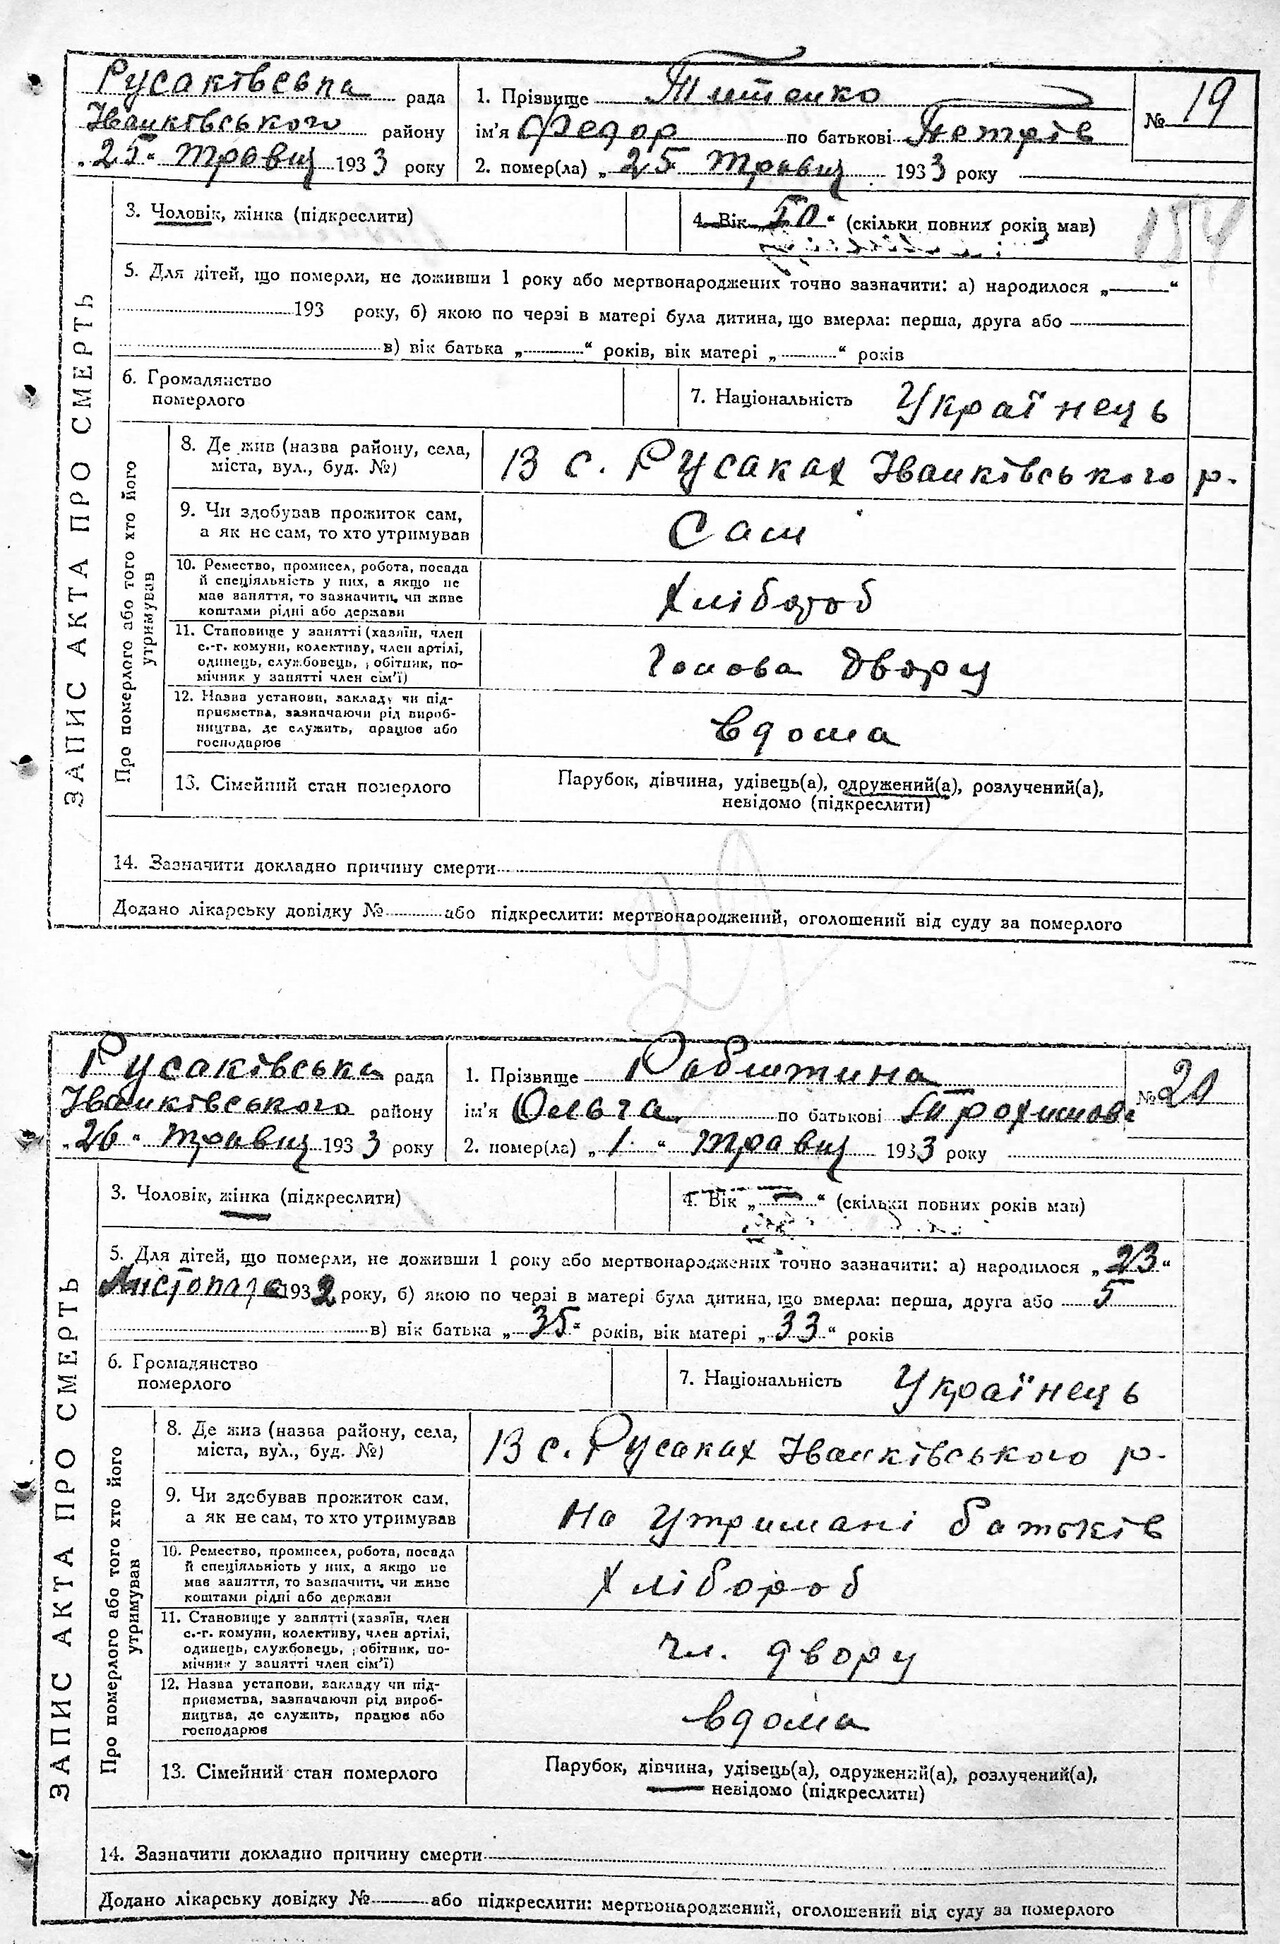 Русаківська рада
Іванківського району
„25“ травня 1933 року
1. Прізвище Титенко
ім'я Федор по батькові Петрів
2. помер(ла) „25“ травня 1933 року
№ 19
3. Чоловік, жінка (підкреслити)
4. Вік „50“ (скільки повних років мав)
154
5. Для дітей, що померли, не доживши 1 року або мертвонароджених точно зазначити: а) народилося „——“
193 року, б) якою по черзі в матері була дитина, що вмерла: перша, друга або
в) вік батька „——“ років, вік матері „——“ років
6. Громадянство
померлого
7. Національність Українець
ЗАПИС АКТА ПРО СМЕРТЬ
Про померлого або того хто його
утримував
8. Де жив (назва району, села,
міста, вул., буд. №)
В с. Русаках Іванківського р.
9. Чи здобував прожиток сам,
а як не сам, то хто утримував
Сам
10. Ремество, промисел, робота, посада
й спеціяльність у них, а якщо не
має заняття, то зазначити, чи живе
коштами рідні або держави
Хлібороб
11. Становище у занятті (хазяїн, член
с.-г. комуни, колективу, член артілі,
одинець, службовець, робітник, по-
мічник у занятті член сім'ї)
Голова двору
12. Назва установи, закладу чи під-
приємства, зазначаючи рід вироб-
ництва, де служить, працює або
господарює
вдома
13. Сімейний стан померлого
Парубок, дівчина, удівець(а), одружений(а), розлучений(а),
невідомо (підкреслити)
14. Зазначити докладно причину смерти
Додано лікарську довідку № або підкреслити: мертвонароджений, оголошений від суду за померлого
29
Русаківська рада
Іванківського району
„26“ травня 1933 року
1. Прізвище
ім'я Ольга по батькові Трохимова
2. помер(ла) „1“ травня 1933 року
№ 20
3. Чоловік, жінка (підкреслити)
4. Вік „—“ (скільки повних років мав)
5. Для дітей, що померли, не доживши 1 року або мертвонароджених точно зазначити: а) народилося „23“
Листопада 1932 року, б) якою по черзі в матері була дитина, що вмерла: перша, друга або 5
в) вік батька „35“ років, вік матері „33“ років
6. Громадянство
померлого
7. Національність Українець
ЗАПИС АКТА ПРО СМЕРТЬ
Про померлого або того хто його
утримував
8. Де жив (назва району, села,
міста, вул., буд. №)
В с. Русаках Іванківського р.
9. Чи здобував прожиток сам,
а як не сам, то хто утримував
на утримані батьків
10. Ремество, промисел, робота, посада
й спеціяльність у них, а якщо не
має заняття, то зазначити, чи живе
коштами рідні або держави
Хлібороб
11. Становище у занятті (хазяїн, член
с.-г. комуни, колективу, член артілі,
одинець, службовець, робітник, по-
мічник у занятті член сім'ї)
чл. двору
12. Назва установи, закладу чи під-
приємства, зазначаючи рід вироб-
ництва, де служить, працює або
господарює
вдома
13. Сімейний стан померлого
Парубок, дівчина, удівець(а), одружений(а), розлучений(а),
невідомо (підкреслити)
14. Зазначити докладно причину смерти
Додано лікарську довідку № або підкреслити: мертвонароджений, оголошений від суду за померлого